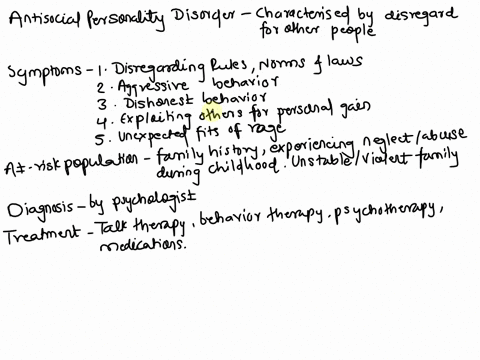 Antisocial Personality Disorder - Characterised by disregard
for other people
Symptoms - 1. Disregarding Rules, Norms & laws
2. Aggressive behavior
3. Dishonest behavior
4. Exploiting others for personal gain
5. Unexpected fits of rage
At-risk population - family history, experiencing neglect/abuse
during childhood. Unstable/Violent family
Diagnosis - by psychologist
Treatment - Talk therapy, behavior therapy, psychotherapy,
medications.